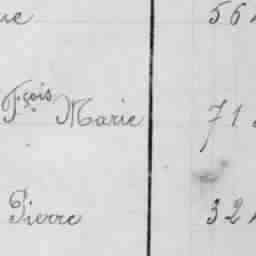 ue 56
Fçois Marie 71
Pierre 32